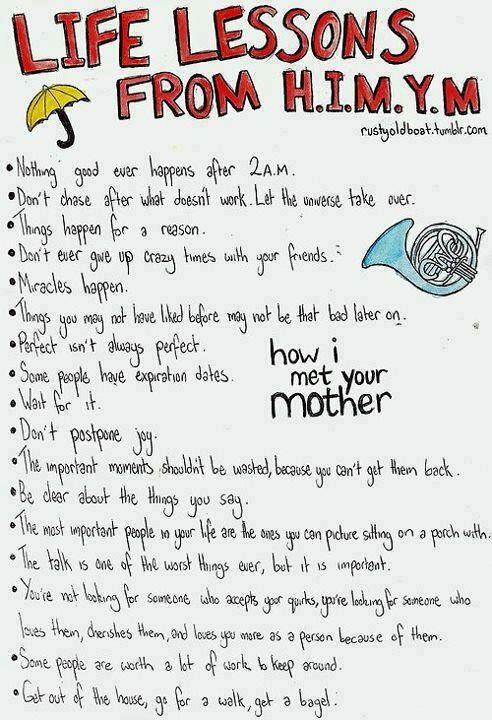 LIFE LESSONS
FROM H.I.M.Y.M
rustyoldboat.tumblr.com
• Nothing good ever happens after 2A.M.
• Don't chase after what doesn't work. Let the universe take over.
• Things happen for a reason.
• Don't ever give up crazy times with your friends.
• Miracles happen.
• Things you may not have liked before may not be that bad later on.
• Perfect isn't always perfect.
• Some people have expiration dates.
• Wait for it.
how i
met your
mother
• Don't postpone joy.
• The important moments shouldn't be wasted, because you can't get them back.
• Be clear about the things you say.
• The most important people in your life are the ones you can picture sitting on a porch with.
• The talk is one of the worst things ever, but it is important.
• You're not looking for someone who accepts your quirks, you're looking for someone who
loves them, cherishes them, and loves you more as a person because of them.
• Some people are worth a lot of work to keep around.
• Get out of the house, go for a walk, get a bagel.